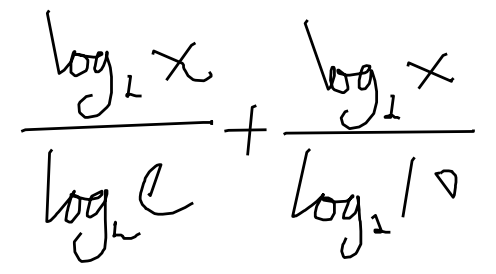 log₂ x + log₂ x
log₂ e log₂ 10